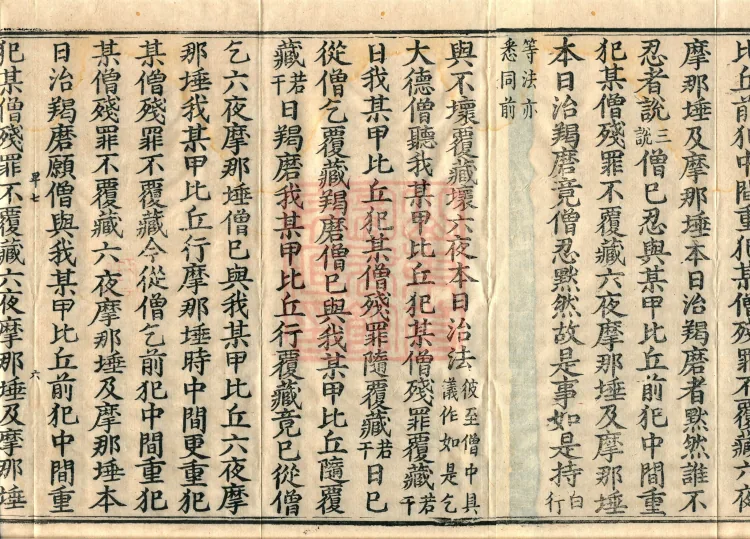 比丘前犯中間重犯某僧殘罪不覆藏六夜
摩那埵及摩那埵本日治羯磨者默然誰不
忍者說三說僧已忍與某甲比丘前犯中間重
犯某僧殘罪不覆藏六夜摩那埵及摩那埵
本日治羯磨竟僧忍默然故是事如是持白行
等法亦
悉同前
與不壞覆藏壞六夜本日治法彼至僧中具
議作如是乞
大德僧聽我某甲比丘犯某僧殘罪覆藏若干
日我某甲比丘犯某僧殘罪隨覆藏若干日已
從僧乞覆藏羯磨僧已與我某甲比丘隨覆
藏若干日羯磨我某甲比丘行覆藏竟已從僧
乞六夜摩那埵僧已與我某甲比丘六夜摩
那埵我某甲比丘行摩那埵時中間更重犯
某僧殘罪不覆藏今從僧乞前犯中間重犯
某僧殘罪不覆藏六夜摩那埵及摩那埵本
日治羯磨願僧與我某甲比丘前犯中間重
犯某僧殘罪不覆藏六夜摩那埵及摩那埵
六